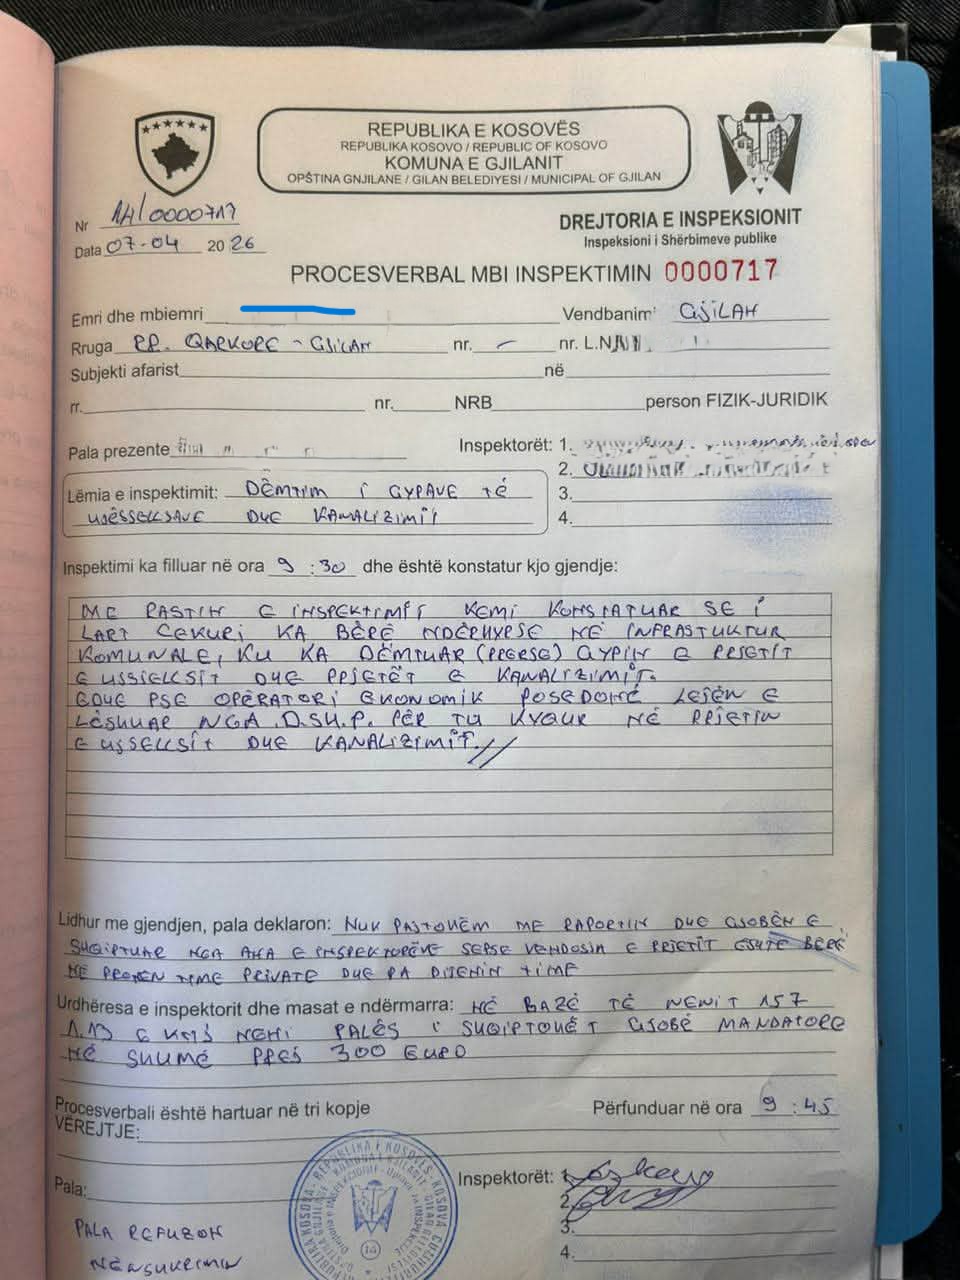 REPUBLIKA E KOSOVËS
REPUBLIKA KOSOVO / REPUBLIC OF KOSOVO
KOMUNA E GJILANIT
OPŠTINA GNJILANE / GILAN BELEDIYESI / MUNICIPAL OF GJILAN
Nr 14/0000717
Data 07-04 2026
DREJTORIA E INSPEKSIONIT
Inspeksioni i Shërbimeve publike
PROCESVERBAL MBI INSPEKTIMIN 0000717
Emri dhe mbiemri Vendbanimi GJILAN
Rruga RR. QARKORE - GJILAN nr. - nr. L.NJ.
Subjekti afarist në
rr. nr. NRB person FIZIK-JURIDIK
Pala prezente Inspektorët: 1.
2.
Lëmia e inspektimit: DËMTIM I GYPAVE TË 3.
UJËSSELLSAVE DHE KANALIZIMIT 4.
Inspektimi ka filluar në ora 9:30 dhe është konstatur kjo gjendje:
ME RASTIN E INSPEKTIMIT KEMI KONSTATUAR SE I
LART CEKURI KA BËRË NDËRHYRSE NË INFRASTUKTUR
KOMUNALE, KU KA DËMTUAR (PRERSE) GYPIN E RRJETIT
E UJSSIELLSIT DHE RRJETËT E KANALIZIMIT.
EDHE PSE OPERATORI EKONOMIK POSEDONË LEJËN E
LËSHUAR NGA D.SH.P. PËR TU KYQUR NË RRJETIN
E UJSSELLSIT DHE KANALIZIMIT.
Lidhur me gjendjen, pala deklaron: NUK PAJTOHEM ME RAPORTIN DHE GJOBËN E
SHQIPTUAR NGA ANA E INSPEKTORËVE SEPSE VENDOSJA E RRJETIT ËSHTË BËRË
NË PRONEN TIME PRIVATE DHE PA DIJENIN TIME
Urdhëresa e inspektorit dhe masat e ndërmarra: NË BAZË TË NENIT 157
1.13 E NENI PALËS I SHQIPTOHËT GJOBË MANDATORE
NË SHUMË PREJ 300 EURO
Procesverbali është hartuar në tri kopje Përfunduar në ora 9:45
VËREJTJE:
Pala: Inspektorët: 1.
2.
3.
4.
PALA REFUZON
NËNSHKRIMIN